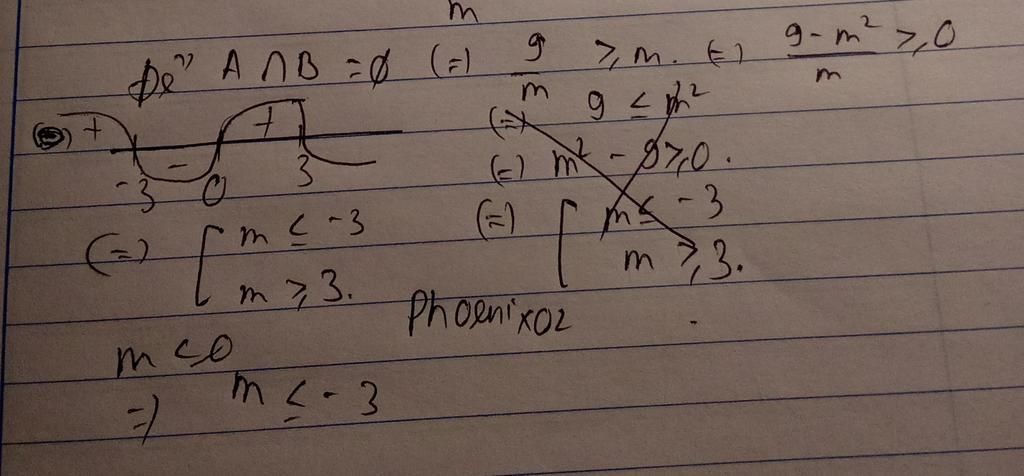 m
Để A ∩ B = ∅ (=) 9/m ≥ m. (=) (9 - m²)/m ≥ 0
(=) 9 ≤ m²
(=) m² - 9 ≥ 0.
(=) [ m ≤ -3
m ≥ 3.
(=) + - +
-3 0 3
(=) [ m ≤ -3
m ≥ 3.
Phoenix02
m < 0
=) m ≤ -3